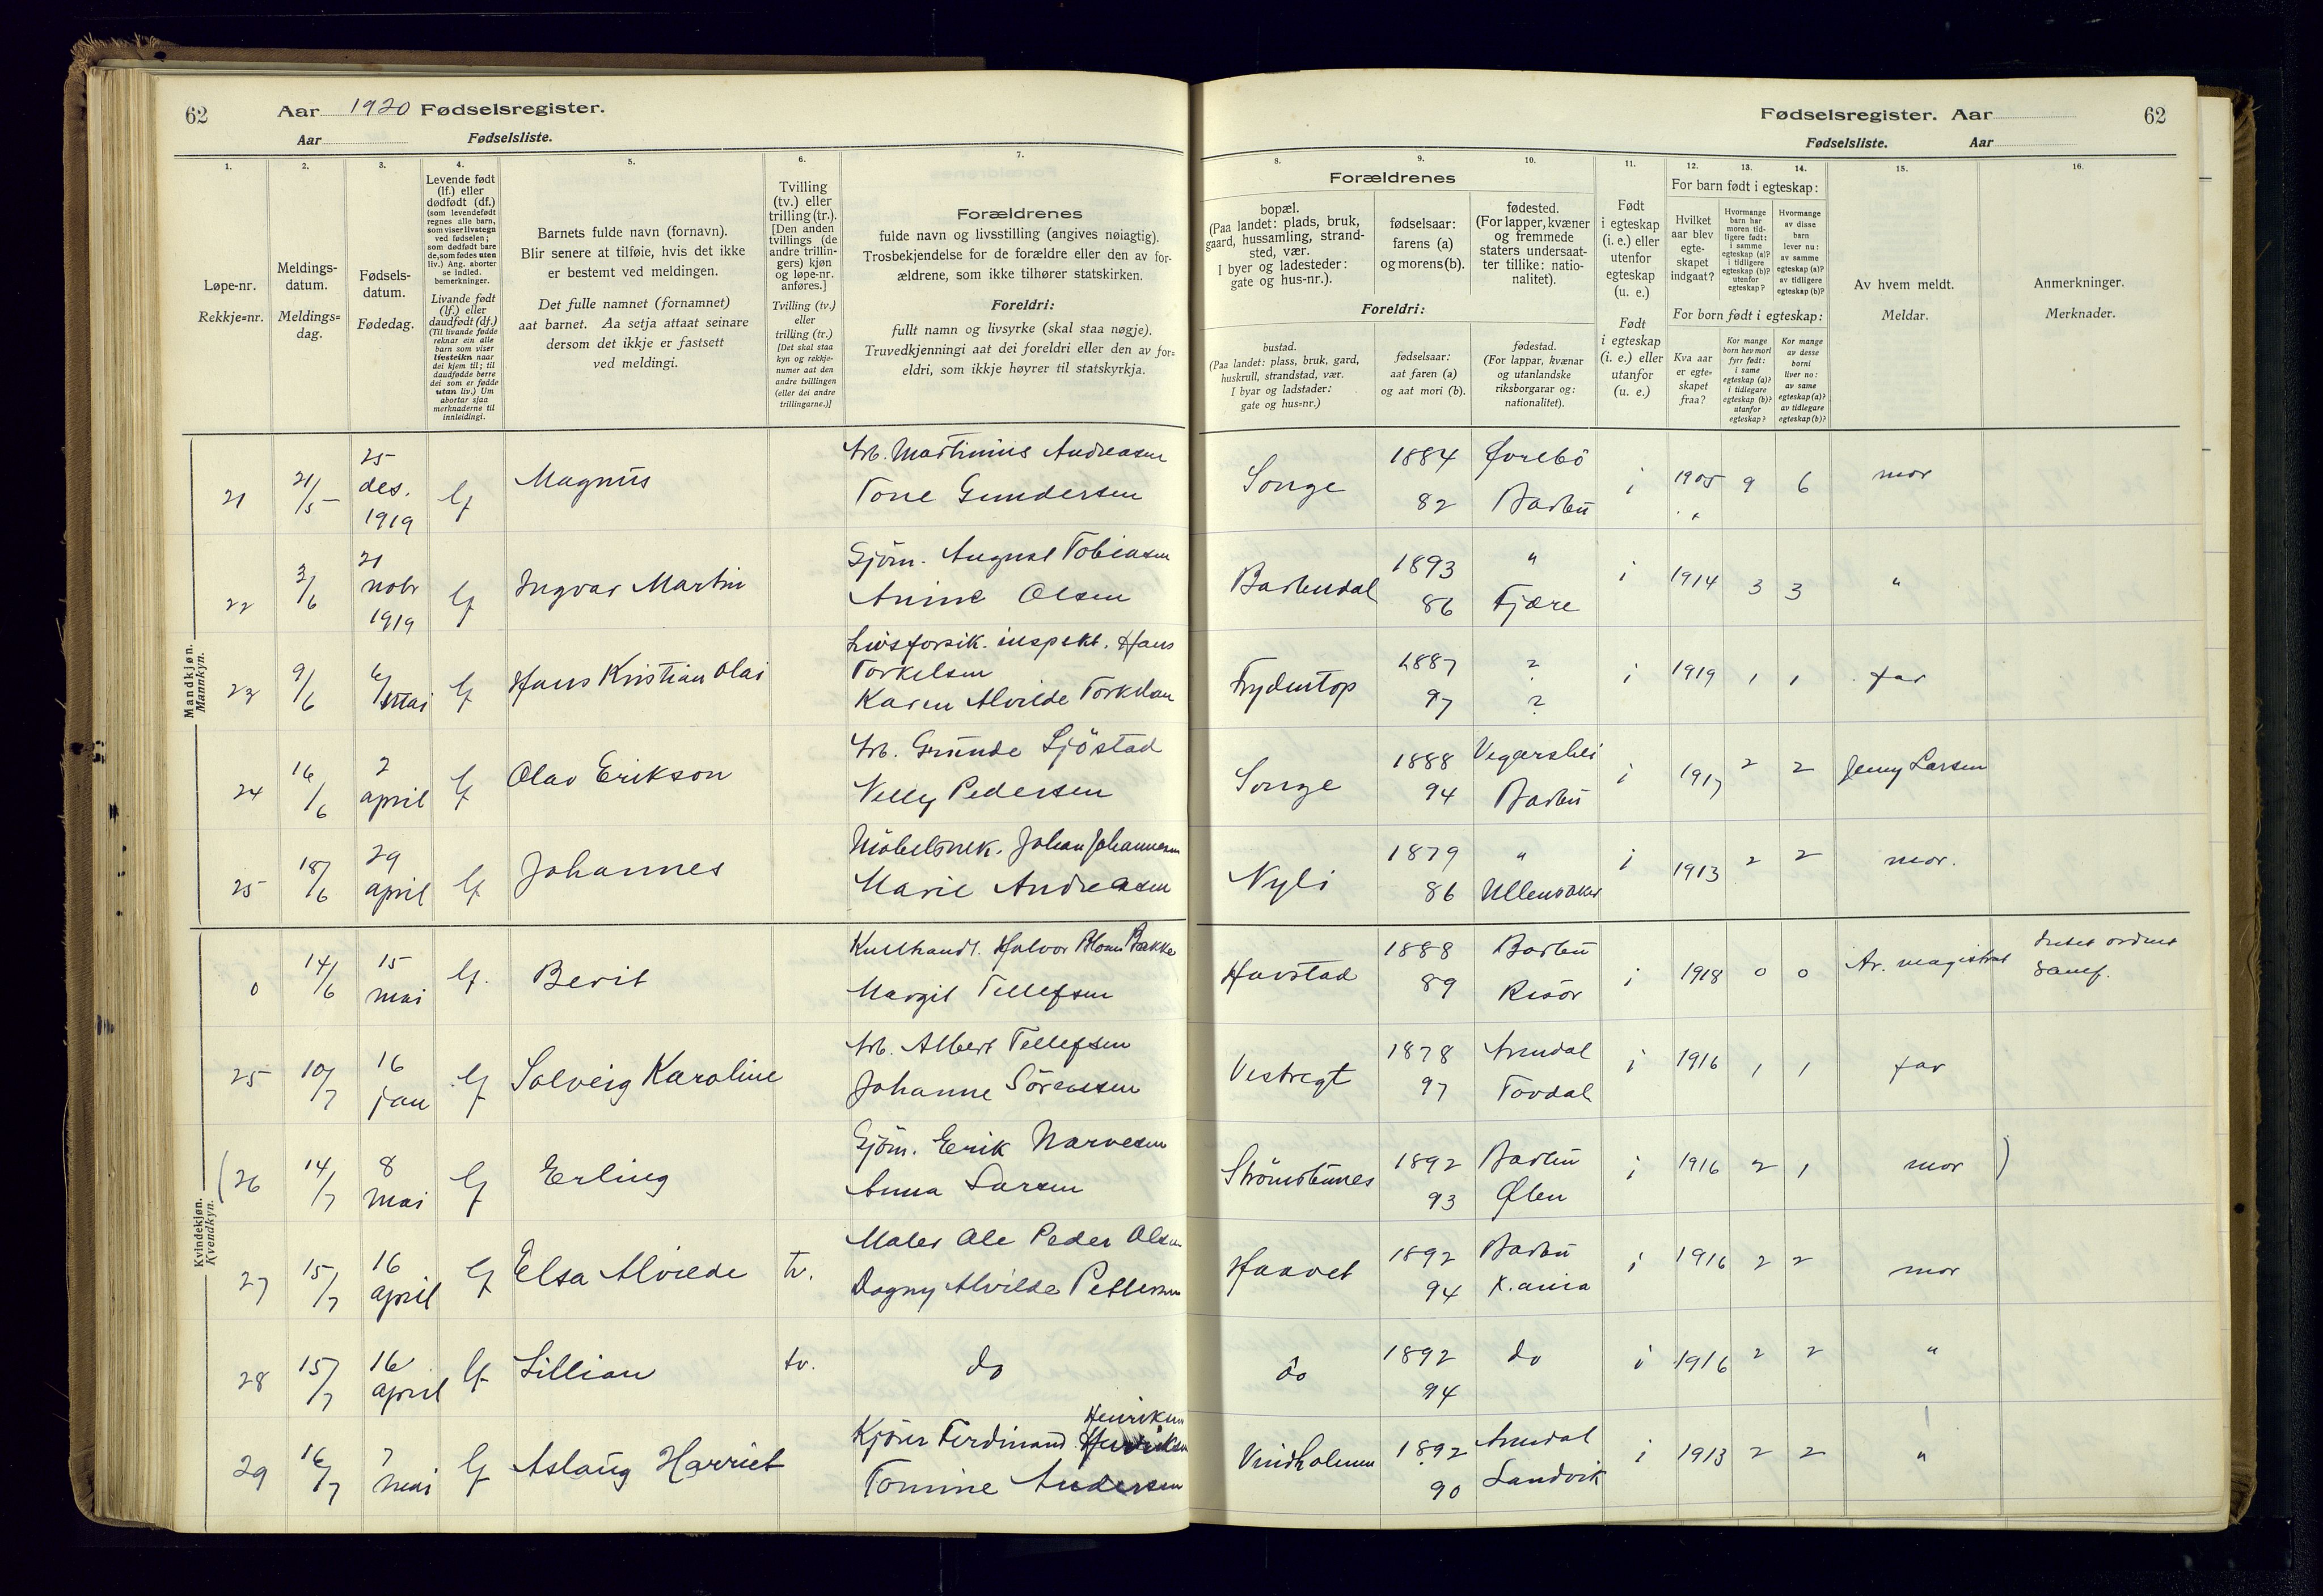 62 Aar 1920 Fødselsregister.
Aar Fødselsliste.
1. 2. 3. 4. 5. 6. 7.
Løpe-nr.
Rekkje=nr.
Meldings-
datum.
Meldings=
dag.
Fødsels-
datum.
Fødedag.
Levende født
(lf.) eller
dødfødt (df.)
(som levendefødt
regnes alle barn,
som viser livstegn
ved fødselen;
som dødfødt bare
de, som fødes uten
liv.) Ang. aborter
se indled.
bemerkninger.
Livande født
(lf.) eller
daudfødt (df.)
(Til livande fødde
reknar ein alle
barn som viser
livsteikn naar
dei kjem til; til
daudfødde berre
dei som er fødde
utan liv.) Um
abortar sjaa
merknaderne til
innleidingi.
Barnets fulde navn (fornavn).
Blir senere at tilføie, hvis det ikke
er bestemt ved meldingen.
Det fulle namnet (fornamnet)
aat barnet. Aa setja attaat seinare
dersom det ikkje er fastsett
ved meldingi.
Tvilling
(tv.) eller
trilling (tr.).
[Den anden
tvillings (de
andre trillin-
gers) kjøn
og løpe-nr.
anføres.]
Tvilling (tv.)
eller
trilling (tr.)
[Det skal staa
kyn og rekkje-
numer aat den
andre tvillingen
(eller dei andre
trillingarne.)]
Forældrenes
fulde navn og livsstilling (angives nøiagtig).
Trosbekjendelse for de forældre eller den av for-
ældrene, som ikke tilhører statskirken.
Foreldri:
fullt namn og livsyrke (skal staa nøgje).
Truvedkjenningi aat dei foreldri eller den av for=
eldri, som ikkje høyrer til statskyrkja.
Fødselsregister. Aar 62
Fødselsliste. Aar
8. 9. 10. 11. 12. 13. 14. 15. 16.
Forældrenes
bopæl.
(Paa landet: plads, bruk,
gaard, hussamling, strand-
sted, vær.
I byer og ladesteder:
gate og hus-nr.).
fødselsaar:
farens (a)
og morens (b).
fødested.
(For lapper, kvæner
og fremmede
staters undersaat-
ter tillike: natio-
nalitet).
Foreldri:
bustad.
(Paa landet: plass, bruk, gard,
huskrull, strandstad, vær.
I byar og ladstader:
gate og hus=nr.)
fødselsaar:
aat faren (a)
og aat mori (b).
fødestad.
(For lappar, kvænar
og utanlandske
riksborgarar og:
nationalitet).
Født
i egteskap
(i. e.) eller
utenfor
egteskap
(u. e.)
Født
i egteskap
(i. e.) eller
utanfor
(u. e.)
For barn født i egteskap:
Hvilket
aar blev
egte-
skapet
indgaat?
Hvormange
barn har
moren tid-
ligere født:
i samme
egteskap (a)?
i tidligere
egteskap (b)?
utenfor
egteskap?
Hvormange
av disse
barn
lever nu:
av samme
egteskap (a)?
av tidligere
egteskap (b)?
For born født i egteskap:
Kva aar
er egte=
skapet
fraa?
Kor mange
born hev mori
fyrr født:
i same
egteskap (a)?
i tidlegare
egteskap (b)?
utanfor
egteskap?
Kor mange
av desse
borni
liver no:
av same
egteskap (a)?
av tidlegare
egteskap (b)?
Av hvem meldt.
Meldar.
Anmerkninger.
Merknader.
Mandkjøn.
Mannkyn.
21 21/5 25 des. 1919 lf Magnus Arb. Martinius Andreasen
Tone Gundersen
Songe 1884 Øvrebö i 1905 9 6 mor
82 Barbu
22 3/6 21 nobr 1919 lf Ingvar Martin Sjöm. August Tobiasen
Anine Olsen
Barbudal 1893 " i 1914 3 3 "
86 Fjære
23 9/6 6/mai lf Hans Kristian Olai Livsforsik. inspekt. Hans
Torkelsen
Karen Alvilde Torkelsen
Frydentop 1887 ? i 1919 1 1 far
97 ?
24 16/6 2 april lf Olav Erikson Arb. Grunde Sjöstad
Nelly Pedersen
Songe 1888 Vegarshei i 1917 2 2 Jenny Larsen
94 Barbu
25 18/6 29 april lf Johannes Möbelsnek. Johan Johannesen
Marie Andreasen
Nyli 1879 " i 1913 2 2 mor.
86 Ullensaker
Kvindekjøn.
Kvendkyn.
0 14/6 15 mai lf. Berit Kullhandl. Halvor Blom Bakke
Margit Tellefsen
Havstad 1888 Barbu i 1918 0 0 Ar. magistrat
89 Risör samf.
25 10/7 16 jan lf Solveig Karoline Arb. Albert Tellefsen
Johanne Sörensen
Vestregt 1878 Arendal i 1916 1 1 far
97 Tovdal
(26 14/7 8 mai lf Erling Sjöm. Erik Narvesen
Anna Larsen
Strömsbunes 1892 Barbu i 1916 2 1 mor )
93 Ølen
27 15/7 16 april lf Elsa Alvilde tv. Maler Ole Peder Olsen
Dagny Alvilde Pettersen
Haavet 1892 Barbu i 1916 2 2 mor
94 K.ania
28 15/7 16 april lf Lillian tv. do
do 1892 do i 1916 2 2 "
94
29 16/7 7 mai lf Aslaug Harriet Kjörer Ferdinand Henriksen
Tomine Andersen
Vindholmen 1892 Arendal i 1913 2 2 "
90 Landvik